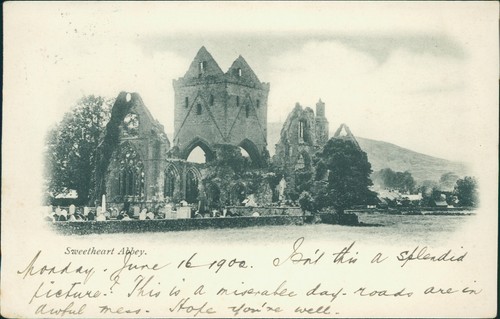 Sweetheart Abbey.
Monday. June 16 1902. Isn't this a splendid
picture? This is a miserable day - roads are in
awful mess. Hope you're well.